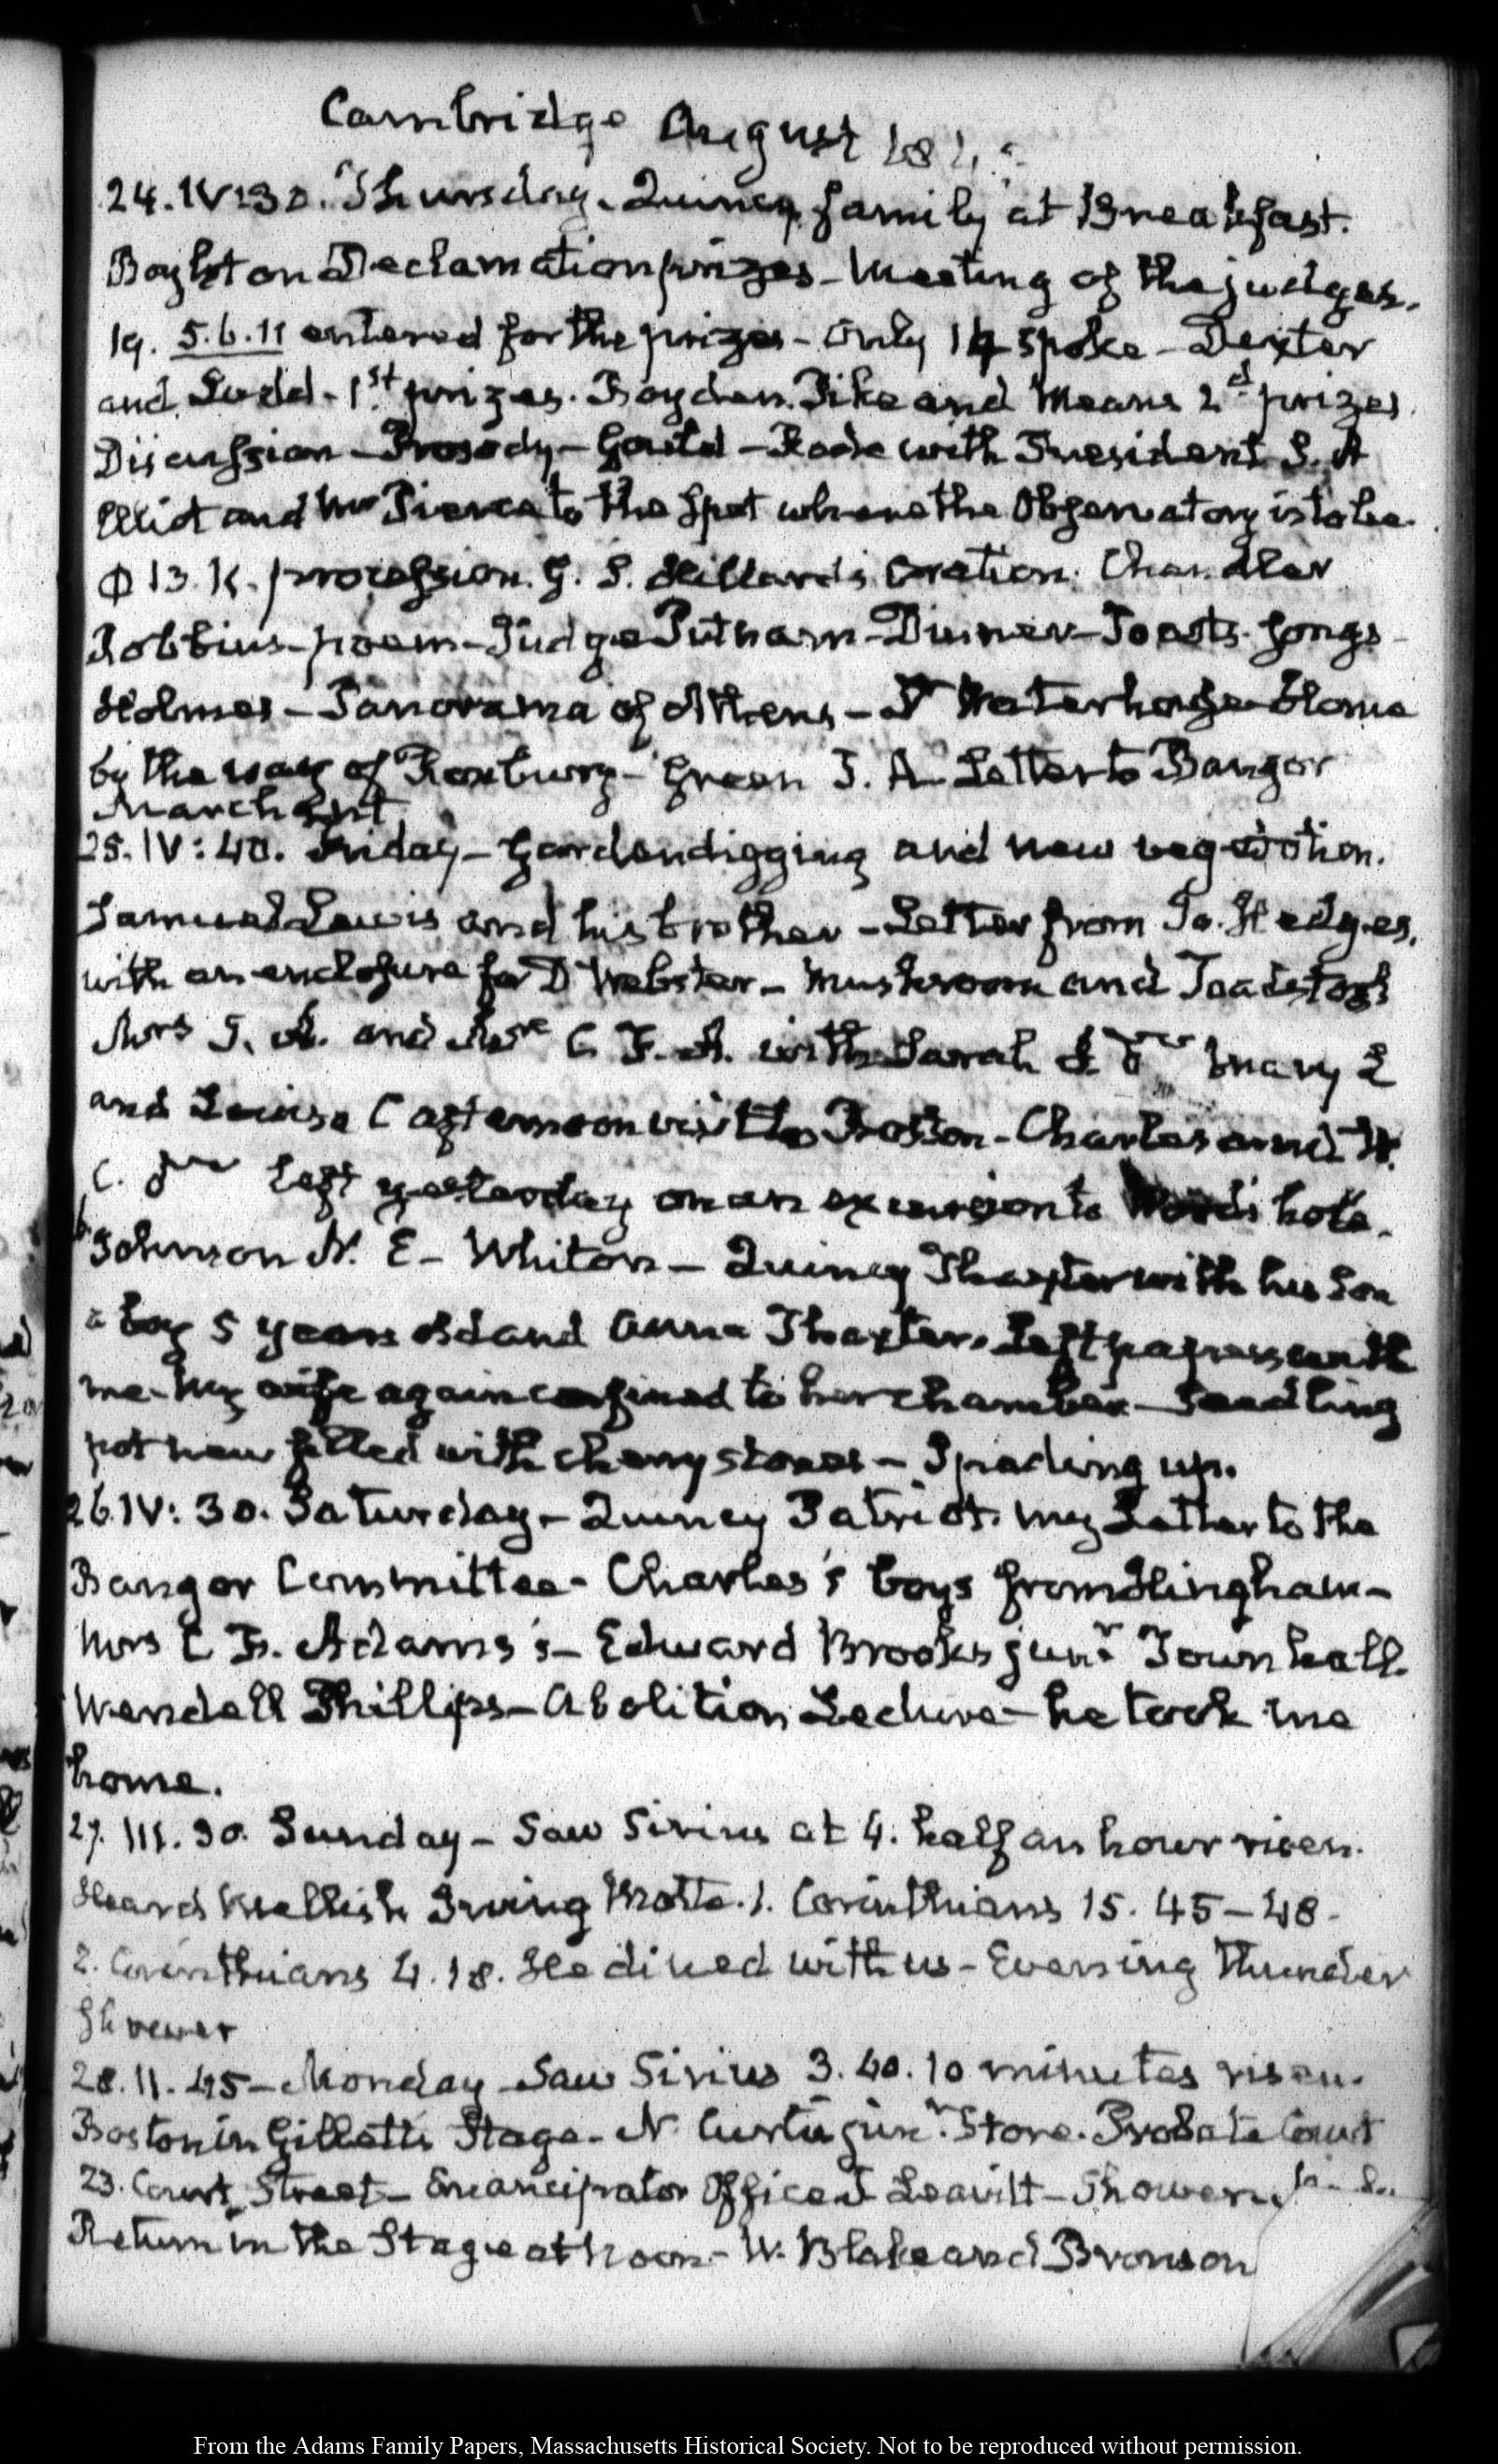 Cambridge August 184
24. IV:30. Thursday. Quincy family at Breakfast.
Boylston Declamation prizes - Meeting of the judges.
19. 5.6.11 entered for the prizes - Only 14 spoke - Dexter
and Ladd - 1st prizes. Boyden. Pike and Means 2d prizes
Discussion - Prosody - Gould - Rode with President S. A
Elliot and Mr Pierce to the Spot where the Observatory is to be.
Φ B. K. procession. G. S. Hillard's Oration. Chandler
Robbins - poem - Judge Putnam - Dinner - Toasts. Songs -
Holmes - Panorama of Athens - Dr Waterhouse - Home
by the way of Roxbury - Green J. A. Letter to Bangor
March sent
25. IV:40. Friday - Garden digging and new vegetation.
Samuel Lewis and his brother - Letter from Jo. Hedges,
with an enclosure for D Webster - Mushroom and Toadstools
Mrs J. A. and Mrs C. F. A. with Sarah &
Mary L
and Louisa C afternoon visit to Boston - Charles and W.
C. left yesterday on an excursion to Woods hole.
Johnson N. E - Whiton - Quincy Thaxter with his Son
a boy 5 years old and Anna Thaxter. Left papers with
me - My wife again confined to her chamber - Seedling
pot new filled with cherry stones - Spading up.
26. IV:30. Saturday - Quincy Patriot. My Letter to the
Bangor Committee - Charles's boys from Hingham -
Mrs C. F. Adams's - Edward Brooks junr Town hall.
Wendell Phillips - Abolition Lecture - he took me
home.
27. III.30. Sunday - Saw Sirius at 4. half an hour risen.
Heard Mellish Irving Motte. 1. Corinthians 15. 45-48.
2. Corinthians 4.18. He dined with us - Evening Thunder
Shower
28. II.45 - Monday - Saw Sirius 3.40. 10 minutes risen.
Boston in Gillett's Stage - N. Curtis junr. Store. Probate Court
23. Court Street - Emancipator Office J Leavitt - Shower
Return in the Stage at Noon - W. Blake and Bronson
From the Adams Family Papers, Massachusetts Historical Society. Not to be reproduced without permission.